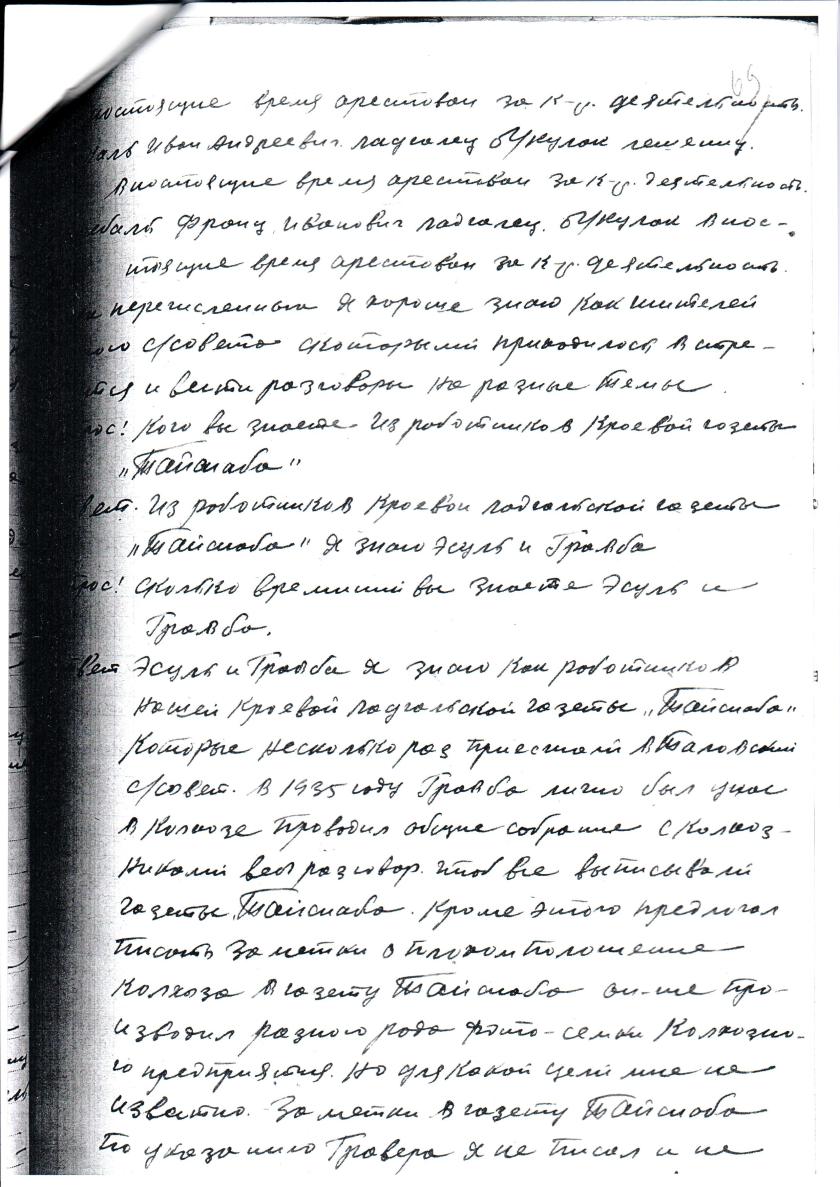 69
настоящие время арестован за к-р. деятельность.
Иван Андреевич. ладгалец б/кулак
в настоящие время арестован за к-р. деятельность.
Франц Иванович ладгалец. б/кулак в нос-
тоящие время арестован за к-р. деятельность.
перечисленных я хороше знаю как жителей
с/совета с которыми приходилось встре-
тся и вести разговоры на разные темы.
Кого вы знаете из работников Краевой газеты
„Тайснаба"
вет. Из работников Краевой ладгальской газеты
„Тайснаба" я знаю Эсуль и Гравба
рос! Сколько времини вы знаете Эсуль и
Гравба.
вет Эсуль и Гравба я знаю как работников
нашей Краевой ладгальской газеты „Тайснаба"
которые несколько раз приезжали в Таловский
с/совет. В 1935 году Гравба лично был у нас
в колхозе проводил общие собрание с колхоз-
никами вел разговор. чтоб все выписывали
газеты Тайснаба. Кроме этого предлогал
писать заметки о плохом положение
колхоза в газету Тайснаба он-же про-
изводил разного рода фото-семки колхозно-
го предприятия. но для какой цели мне не
известно. Заметки в газету Тайснаба
По указанию Гравера я не писал и не